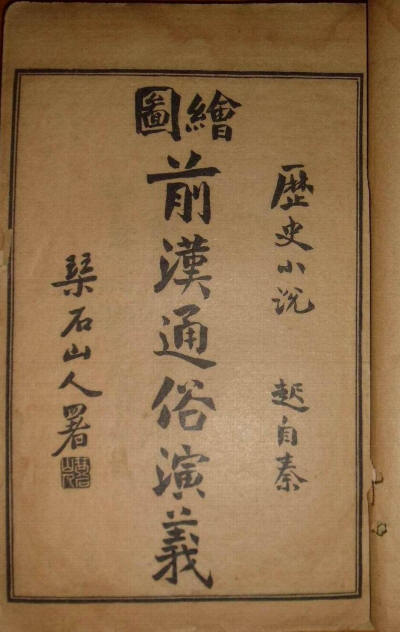 歷史小説 起自秦
繪圖
前漢通俗演義
琹石山人署